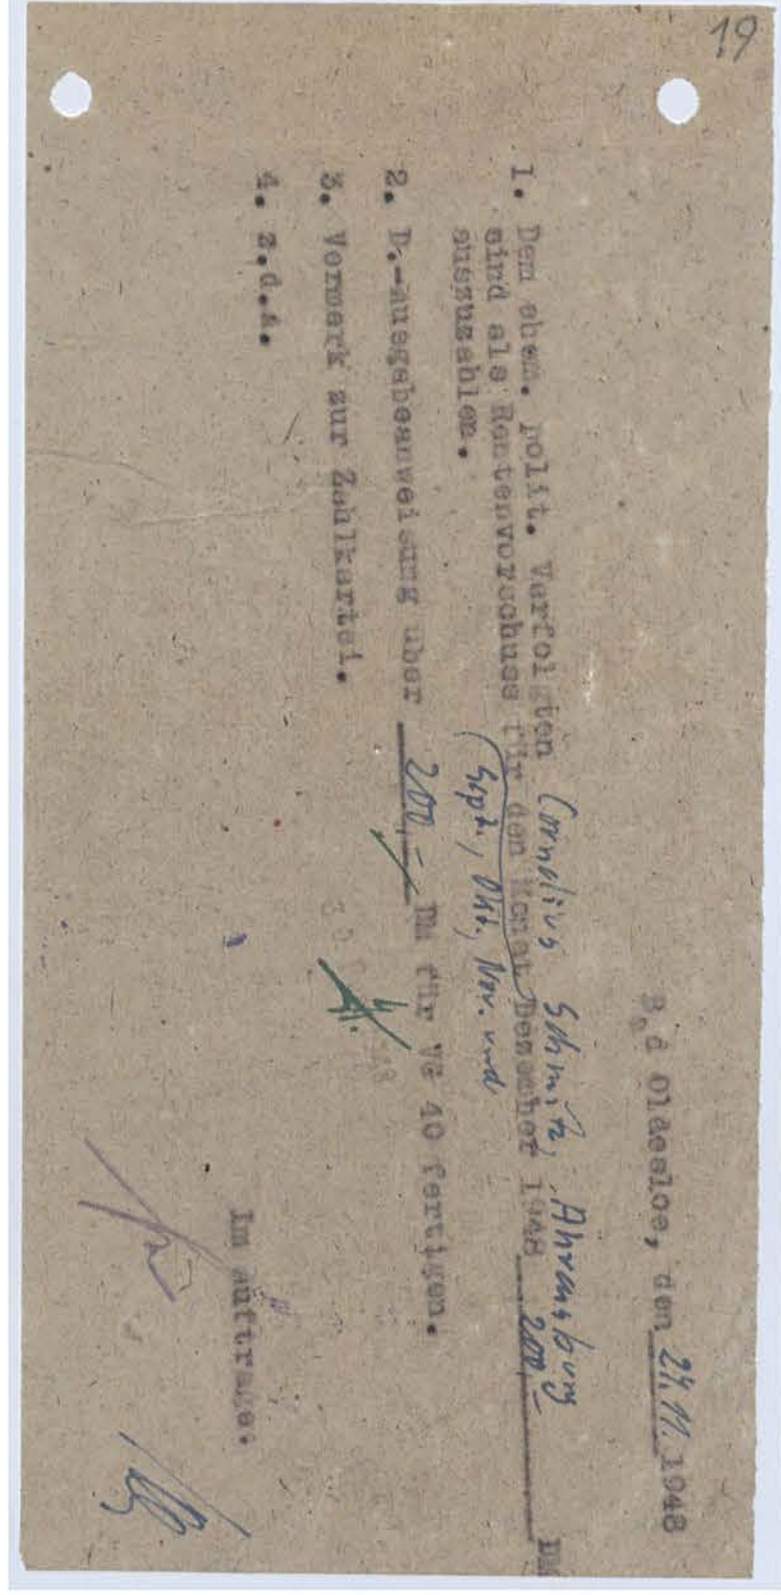 19
Bad Oldesloe, den 24.11. 1948
1. Dem ehem. polit. Verfolgten Cornelius Schmitz, Ahrensburg
sind als Rentenvorschuss für den Monat Dezember 1948 200,- DM
(Sept., Okt., Nov. und
auszuzahlen.
2. D.-ausgabeanweisung über 200,- DM für VG 40 fertigen.
3. Vermerk zur Zahlkartei.
4. z.d.A.
Im Auftrage: